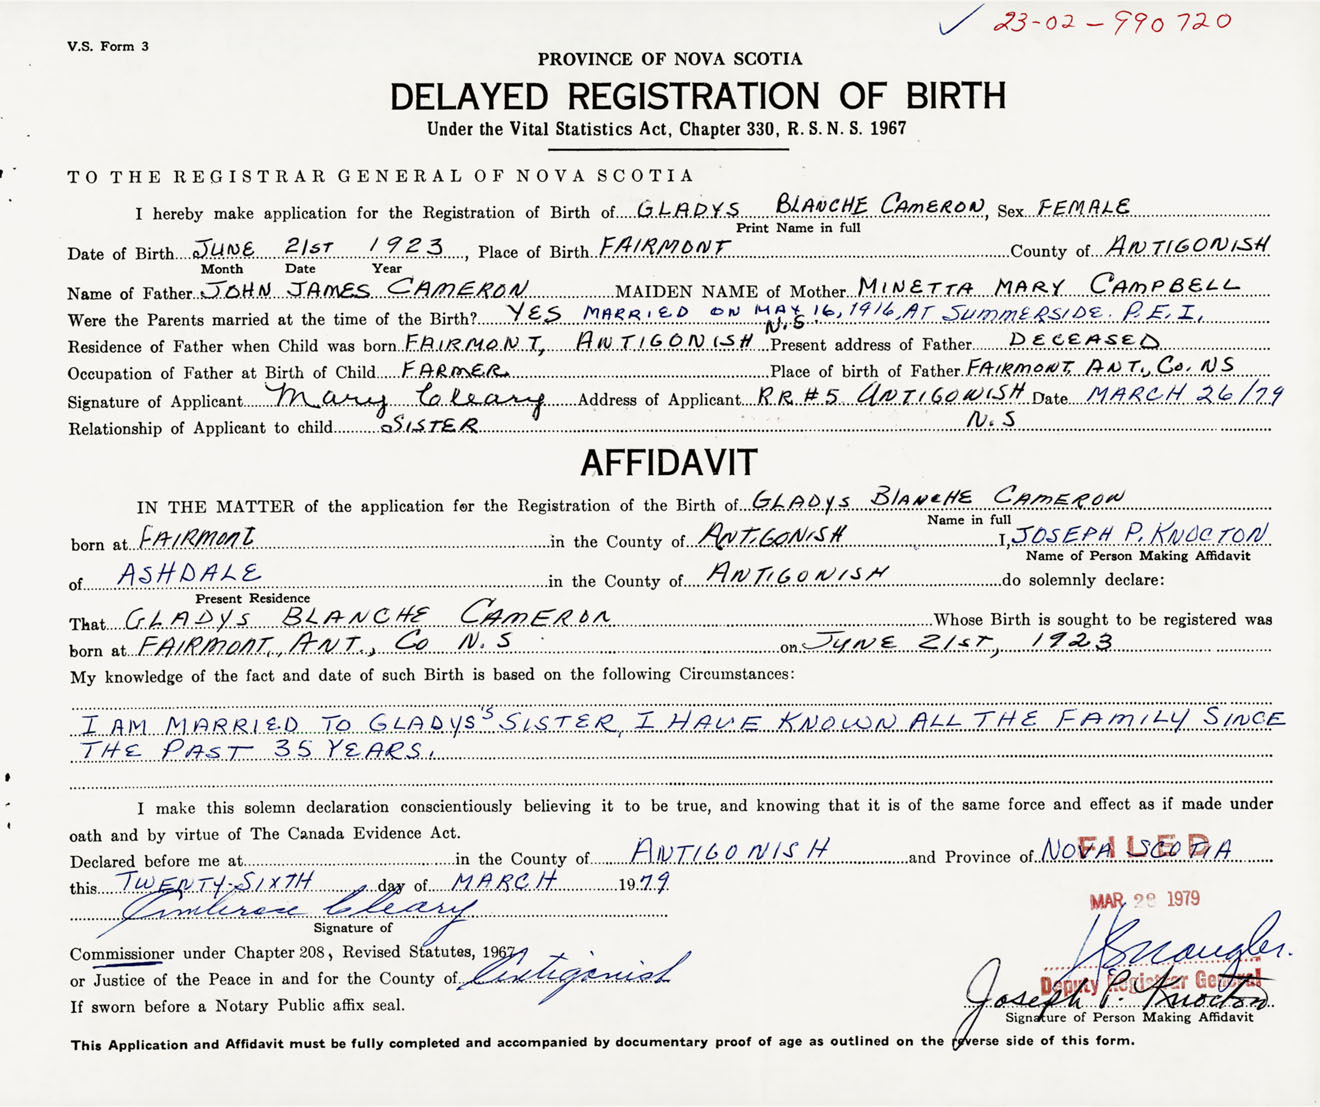 23-02-990720
V.S. Form 3
PROVINCE OF NOVA SCOTIA
DELAYED REGISTRATION OF BIRTH
Under the Vital Statistics Act, Chapter 330, R.S.N.S. 1967
TO THE REGISTRAR GENERAL OF NOVA SCOTIA
I hereby make application for the Registration of Birth of GLADYS BLANCHE CAMERON, Sex FEMALE
Print Name in full
Date of Birth JUNE 21ST 1923, Place of Birth FAIRMONT County of ANTIGONISH
Month Date Year
Name of Father JOHN JAMES CAMERON MAIDEN NAME of Mother MINETTA MARY CAMPBELL
Were the Parents married at the time of the Birth? YES MARRIED ON MAY 16, 1916, AT SUMMERSIDE. P.E.I.
Residence of Father when Child was born FAIRMONT, ANTIGONISH N.S. Present address of Father DECEASED
Occupation of Father at Birth of Child FARMER Place of birth of Father FAIRMONT, ANT., CO. NS
Signature of Applicant Mary Cleary Address of Applicant RR#5 ANTIGONISH Date MARCH 26/79
Relationship of Applicant to child SISTER N.S
AFFIDAVIT
IN THE MATTER of the application for the Registration of the Birth of GLADYS BLANCHE CAMERON
Name in full
born at FAIRMONT in the County of ANTIGONISH I, JOSEPH P. KNOCTON
Name of Person Making Affidavit
of ASHDALE in the County of ANTIGONISH do solemnly declare:
Present Residence
That GLADYS BLANCHE CAMERON Whose Birth is sought to be registered was
born at FAIRMONT, ANT., CO N.S on JUNE 21ST, 1923
My knowledge of the fact and date of such Birth is based on the following Circumstances:
I AM MARRIED TO GLADYS'S SISTER, I HAVE KNOWN ALL THE FAMILY SINCE
THE PAST 35 YEARS.
I make this solemn declaration conscientiously believing it to be true, and knowing that it is of the same force and effect as if made under
oath and by virtue of The Canada Evidence Act.
Declared before me at in the County of ANTIGONISH and Province of NOVA SCOTIA
FILED
this TWENTY-SIXTH day of MARCH 1979
MAR 28 1979
Ambrose Cleary
Signature of
Commissioner under Chapter 208, Revised Statutes, 1967
or Justice of the Peace in and for the County of Antigonish
Deputy Registrar General
Joseph P. Knocton
If sworn before a Notary Public affix seal.
Signature of Person Making Affidavit
This Application and Affidavit must be fully completed and accompanied by documentary proof of age as outlined on the reverse side of this form.